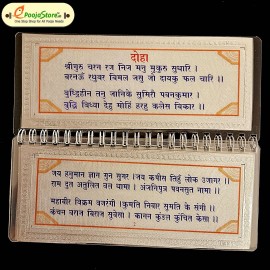 ePoojaStore.in
One Stop Shop for All Pooja Needs
दोहा
श्रीगुरु चरन रज निज मनु मुकुरु सुधारि ।
बरनऊँ रघुवर बिमल जसु जो दायकु फल चारि ।।
बुध्दिहीन तनु जानिके सुमिरौं पवनकुमार ।
बुद्धि विधा देहु मोहिं हरहु कलेस विकार ।।
जय हनुमान ज्ञान गुन सागर ।जय कपीस तिहुँ लोक उजागर ।।
राम दूत अतुलित बल धामा । अंजनिपुत्र पवनसुत नामा ।।
महावीर विक्रम बजरंगी ।कुमति निवार सुमति के संगी ।।
कंचन बरन बिराज सुवेसा । कानन कुंडल कुंचित केसा ।।